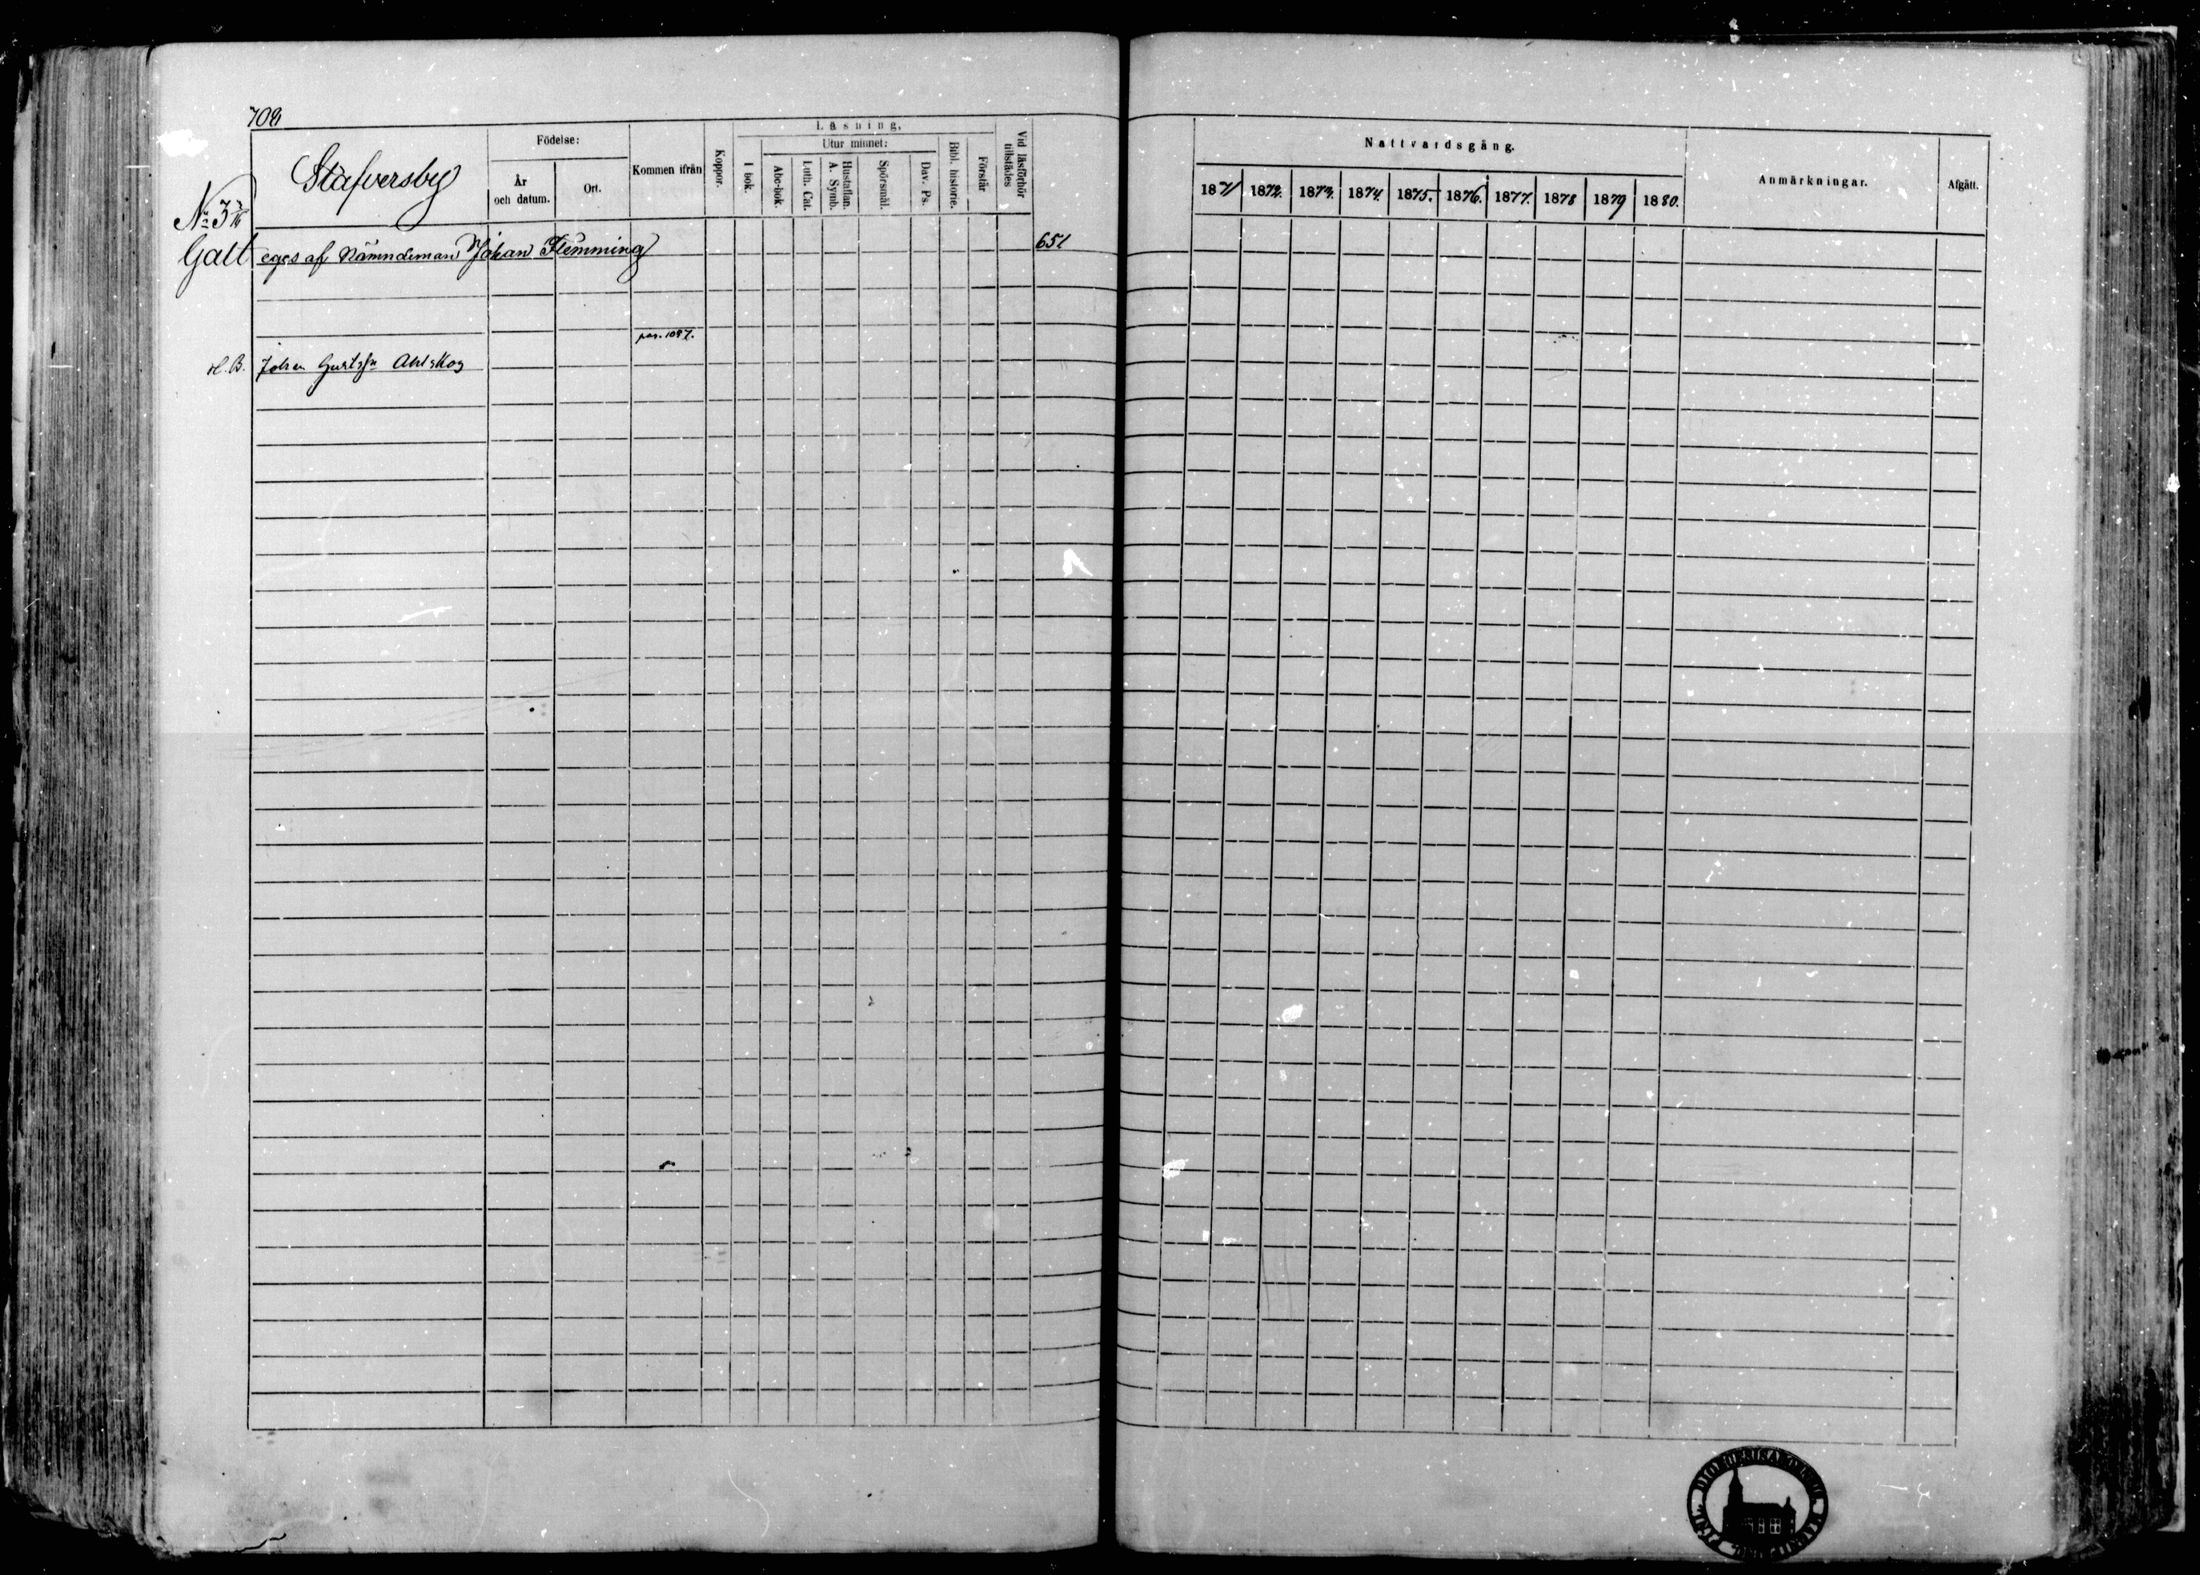 Stafversby
Födelse:
År och datum.
Ort.
Kommen ifrån
Koppor.
Läsning.
I bok.
Utur minnet:
Abc-bok.
Luth. Cat.
Hustaflan. A. Symb.
Spörsmål.
Dav. Ps.
Bibl. historie.
Förstår
Vid läsförhör tillstädes
Nattvardsgång.
1871 1872. 1873. 1874. 1875. 1876. 1877. 1878 1879 1880.
Anmärkningar.
Afgått.
Galt eges af Nämndeman Johan Flemming 651
pag. 1087.
Johan Gustsfn Ahlskog